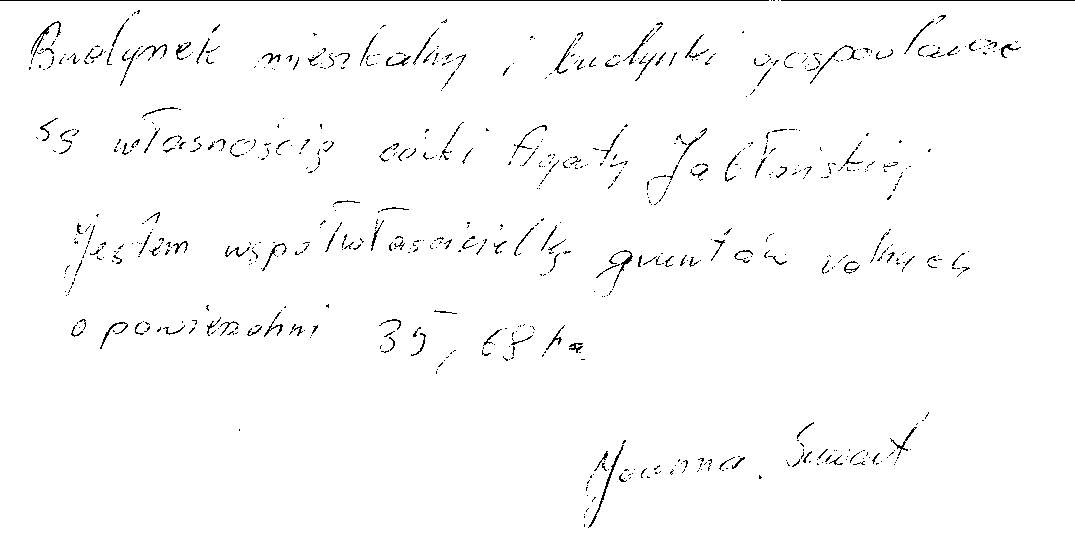 Budynek mieszkalny i budynki gospodarcze
są własnością córki Agaty Jabłońskiej
Jestem współwłaścicielką gruntów rolnych
o powierzchni 35,68 ha
Joanna